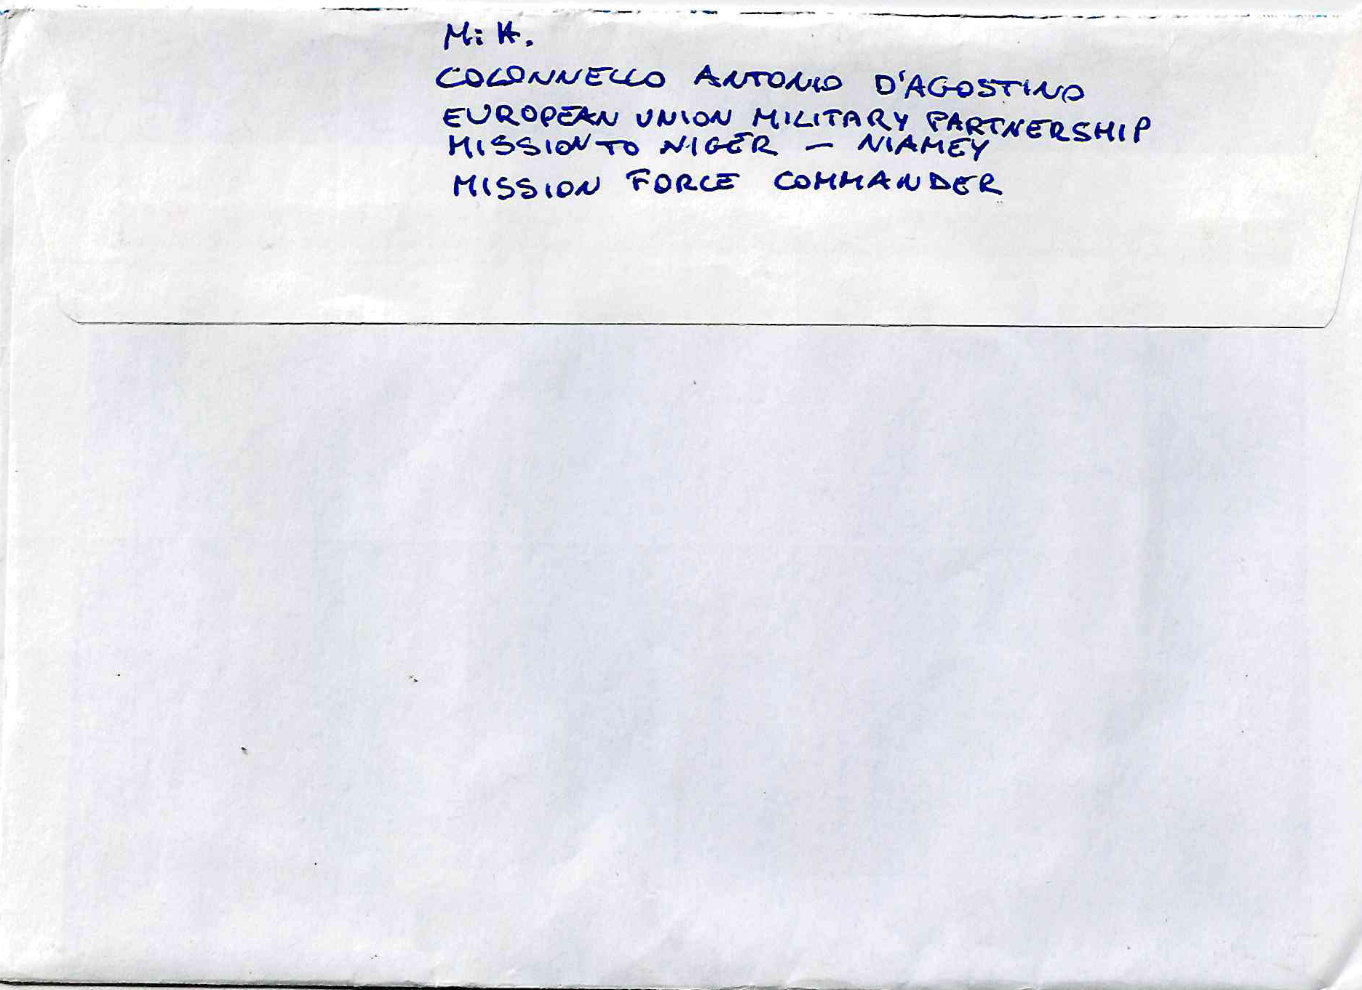 Mitt.
COLONNELLO ANTONIO D'AGOSTINO
EUROPEAN UNION MILITARY PARTNERSHIP
MISSION TO NIGER – NIAMEY
MISSION FORCE COMMANDER